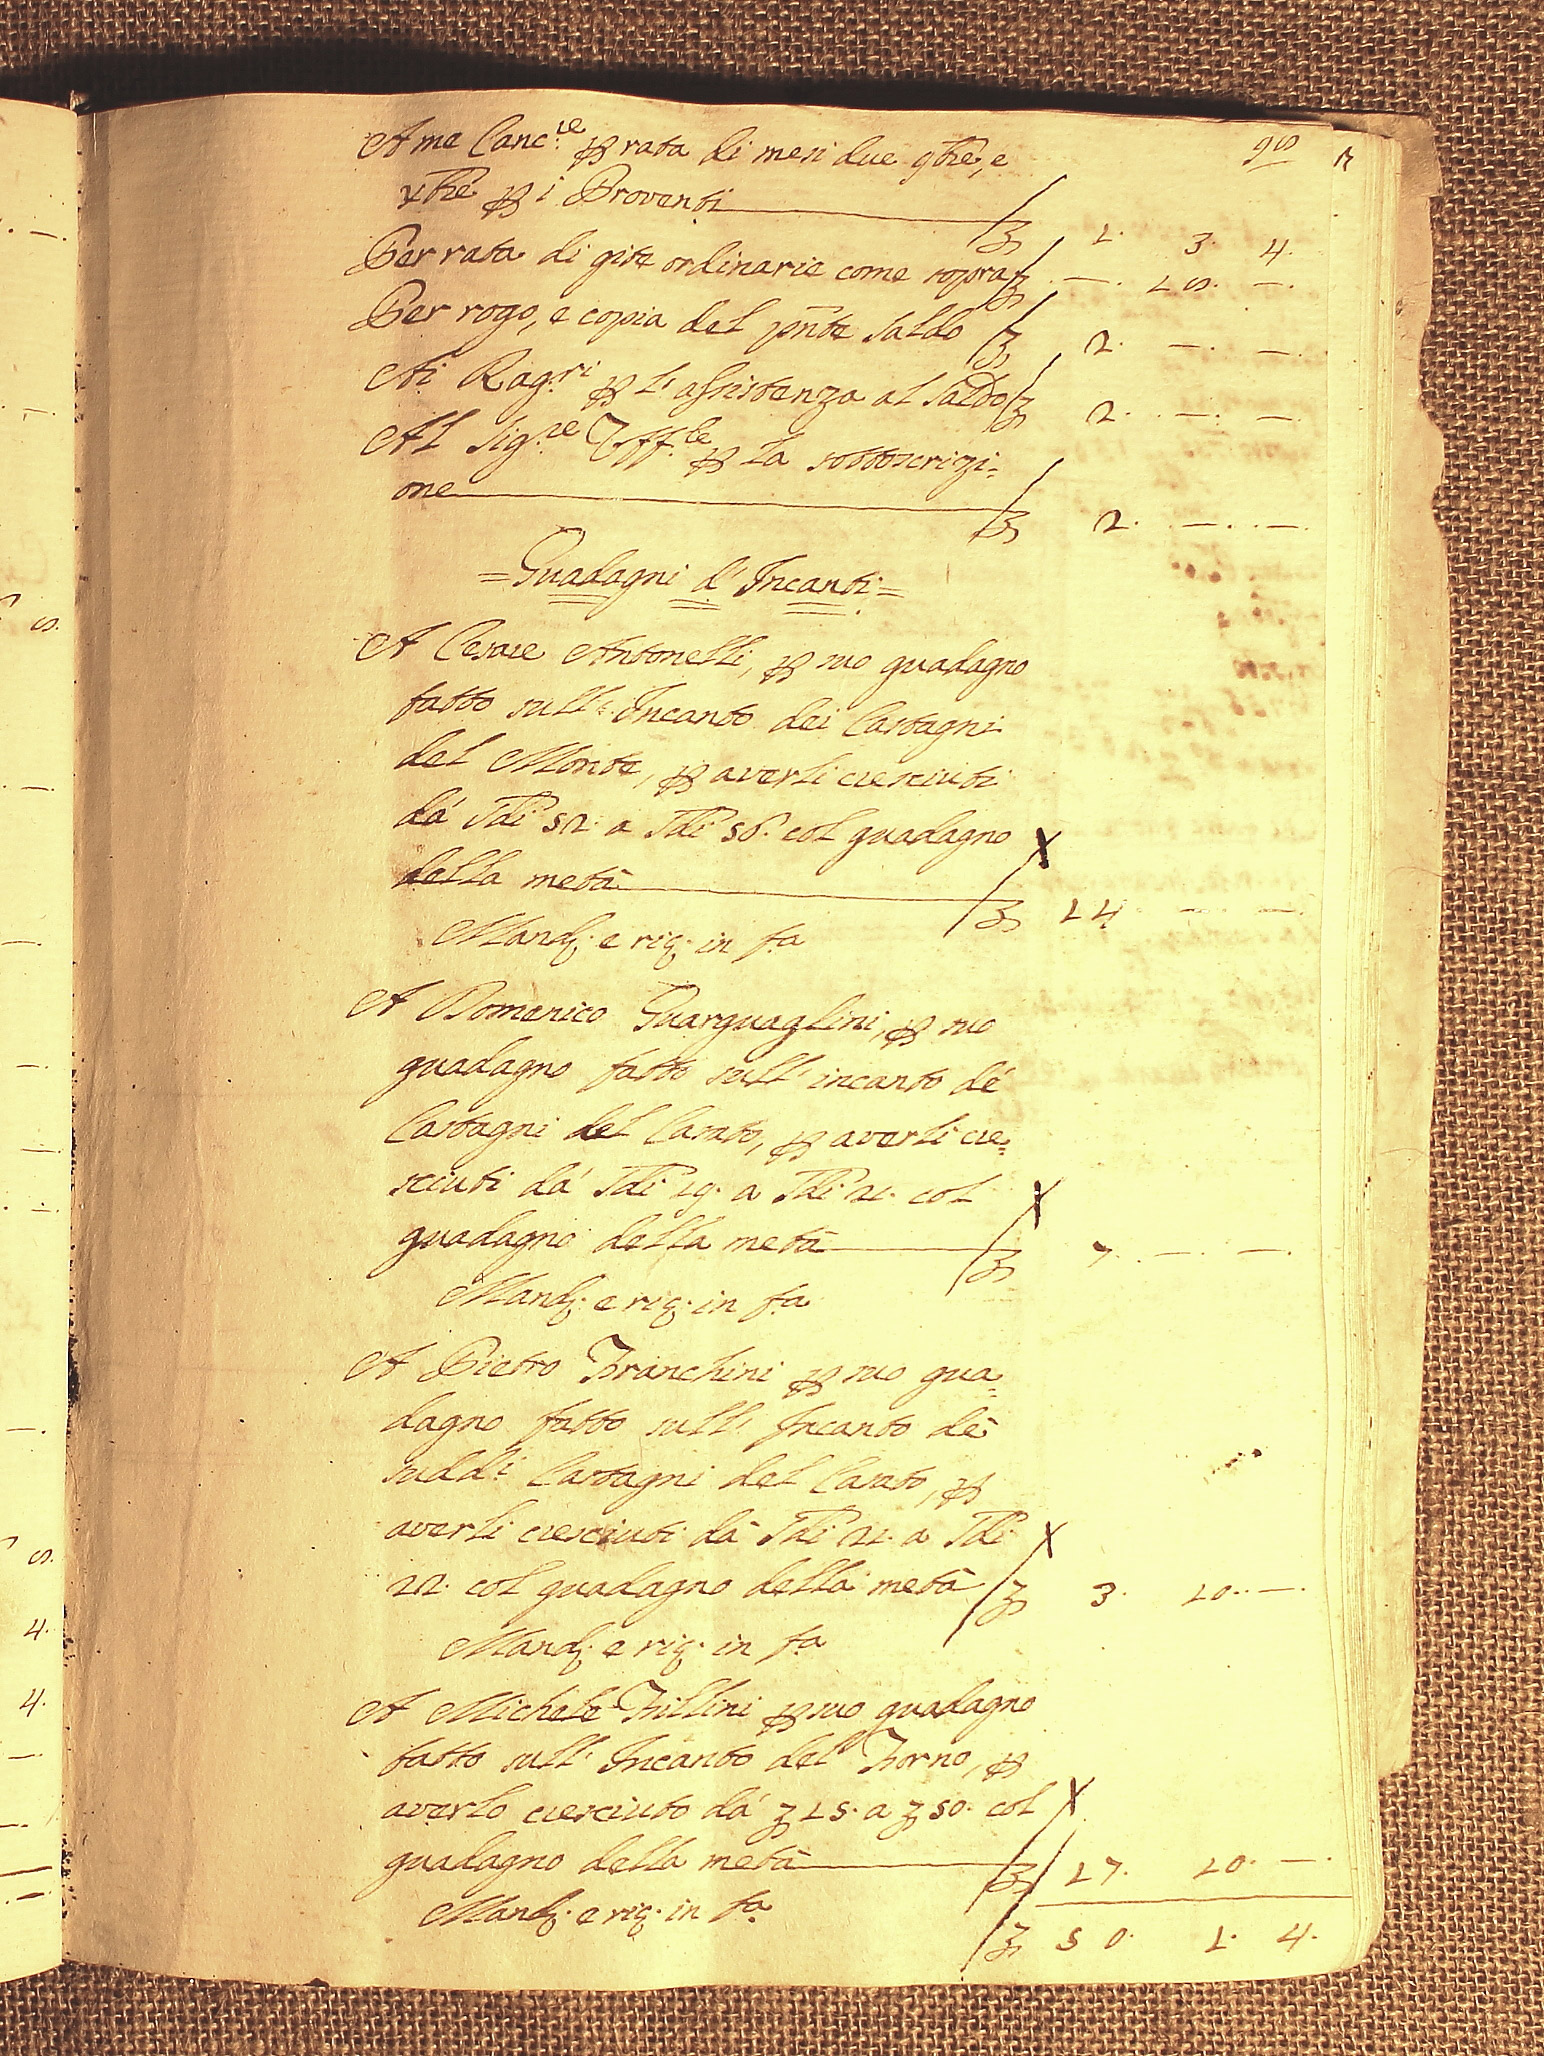 98
A me Canc.re p rata di mesi due 9bre, e
xbre p i Proventi £ 1. 3. 4.
Per rata di gite ordinarie come sopra £ —. 18. —.
Per rogo, e copia del pnte Saldo £ 2. —. —.
Ai Rag.ri p l' assistenza al Saldo £ 2. —. —.
Al Sig.re Uff.le p la sottoscrizi=
one £ 2. —. —.
=Guadagni d' Incanti=
A Cesare Antonelli, p suo guadagno
fatto sull' Incanto dei Castagni
del Monte, p averli cresciuti
dá Sdi 52. a Sdi 56. col guadagno X
della metà £ 14. — —
Mand. e riq. in fa
A Domenico Guarguaglini, p suo
guadagno fatto sull' incanto dé
Castagni del Casato, p averli cre=
sciuti dá Sdi 19. a Sdi 21. col X
guadagno della metà £ 7. —. —.
Mand. e riq. in fa
A Pietro Franchini p suo gua=
dagno fatto sull' Incanto dé
sudd.i Castagni del Casato, p
averli cresciuti dà Sdi 21. a Sdi X
22. col guadagno della metà £ 3. 10. —.
Mand. e riq. in fa
A Michele Fillini p suo guadagno
fatto sull' Incanto del Forno, p
averlo cresciuto dá £ 15. a £ 50. col X
guadagno della metà £ 17. 10. —.
Mand. e riq. in fa
£ 50. 1. 4.